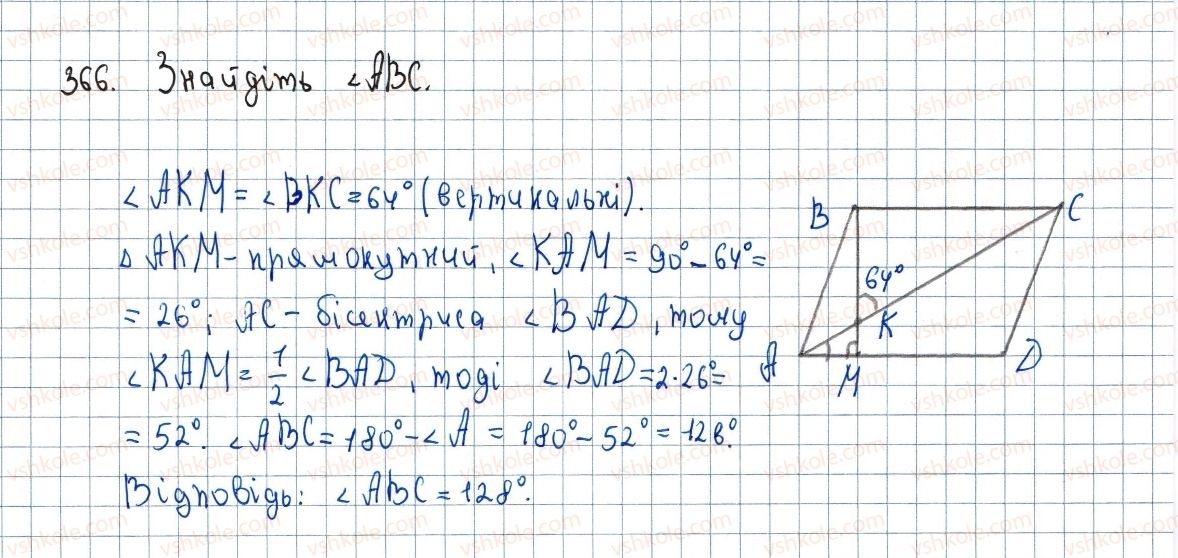 366. Знайдіть ∠ABC.
∠AKM = ∠BKC = 64° (вертикальні).
△ AKM - прямокутний, ∠KAM = 90° - 64° =
= 26°; AC - бісектриса ∠BAD, тому
∠KAM = 1/2 ∠BAD, тоді ∠BAD = 2·26° =
= 52°. ∠ABC = 180° - ∠A = 180° - 52° = 128°.
Відповідь: ∠ABC = 128°.
B
C
64°
K
A
M
D
vshkole.com